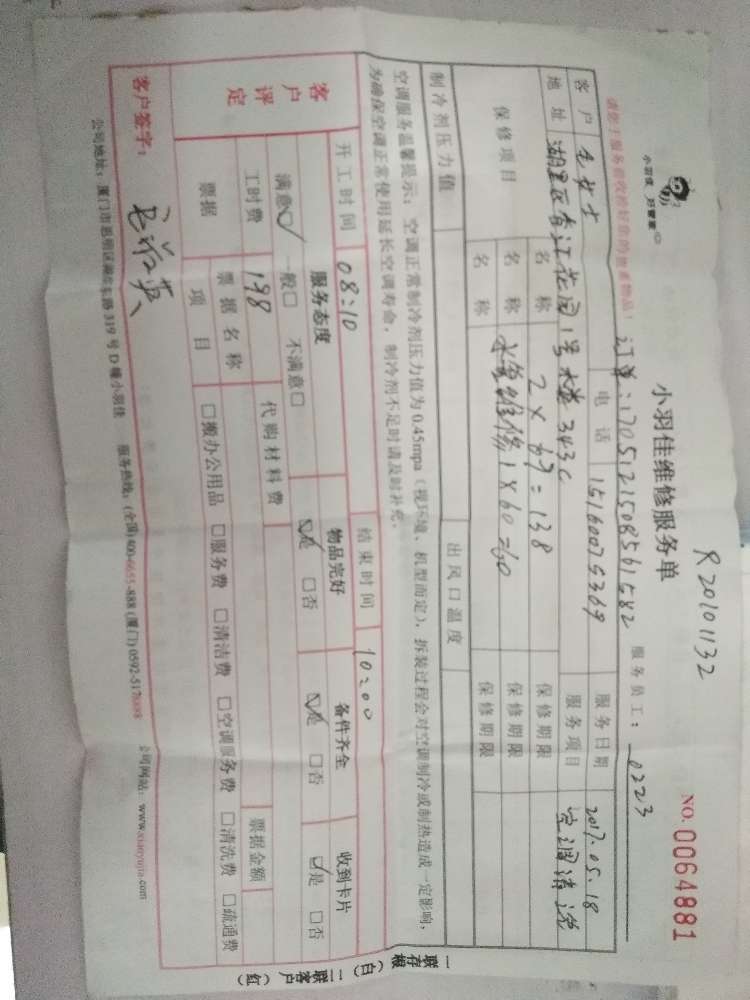 小羽佳 好管家
小羽佳维修服务单
R20101132
NO.0064881
请您于服务前收拾好您的贵重物品!
订单:1705121508561582
服务员工: 0223
客户
女士
电话
15160075369
服务日期
2017.05.18
地址
湖里区春江花园1号楼343C
服务项目
空调清洗
保修项目
名称
2×69=138
保修期限
名称
水管维修1×60=60
保修期限
名称
保修期限
制冷剂压力值
出风口温度
空调服务温馨提示:空调正常制冷剂压力值为0.45mpa(视环境、机型而定),拆装过程会对空调制冷或制热造成一定影响,
为确保空调正常使用延长空调寿命,制冷剂不足时请及时补充。
开工时间
08:10
结束时间
10:00
客户评定
服务态度
物品完好
备件齐全
收到卡片
满意☑ 一般□ 不满意□
☑是 □否
☑是 □否
☑是 □否
工时费
198
代购材料费
票据
票据名称
票据金额
项目
□搬办公用品 □服务费 □清洁费 □空调服务费 □清洗费 □疏通费
客户签字:
公司地址:厦门市思明区湖东路319号D幢小羽佳 服务热线:(全国)400-6655-888(厦门)0592-517
公司网站:www.xiaoyujia.com
一联存根(白) 二联客户(红)